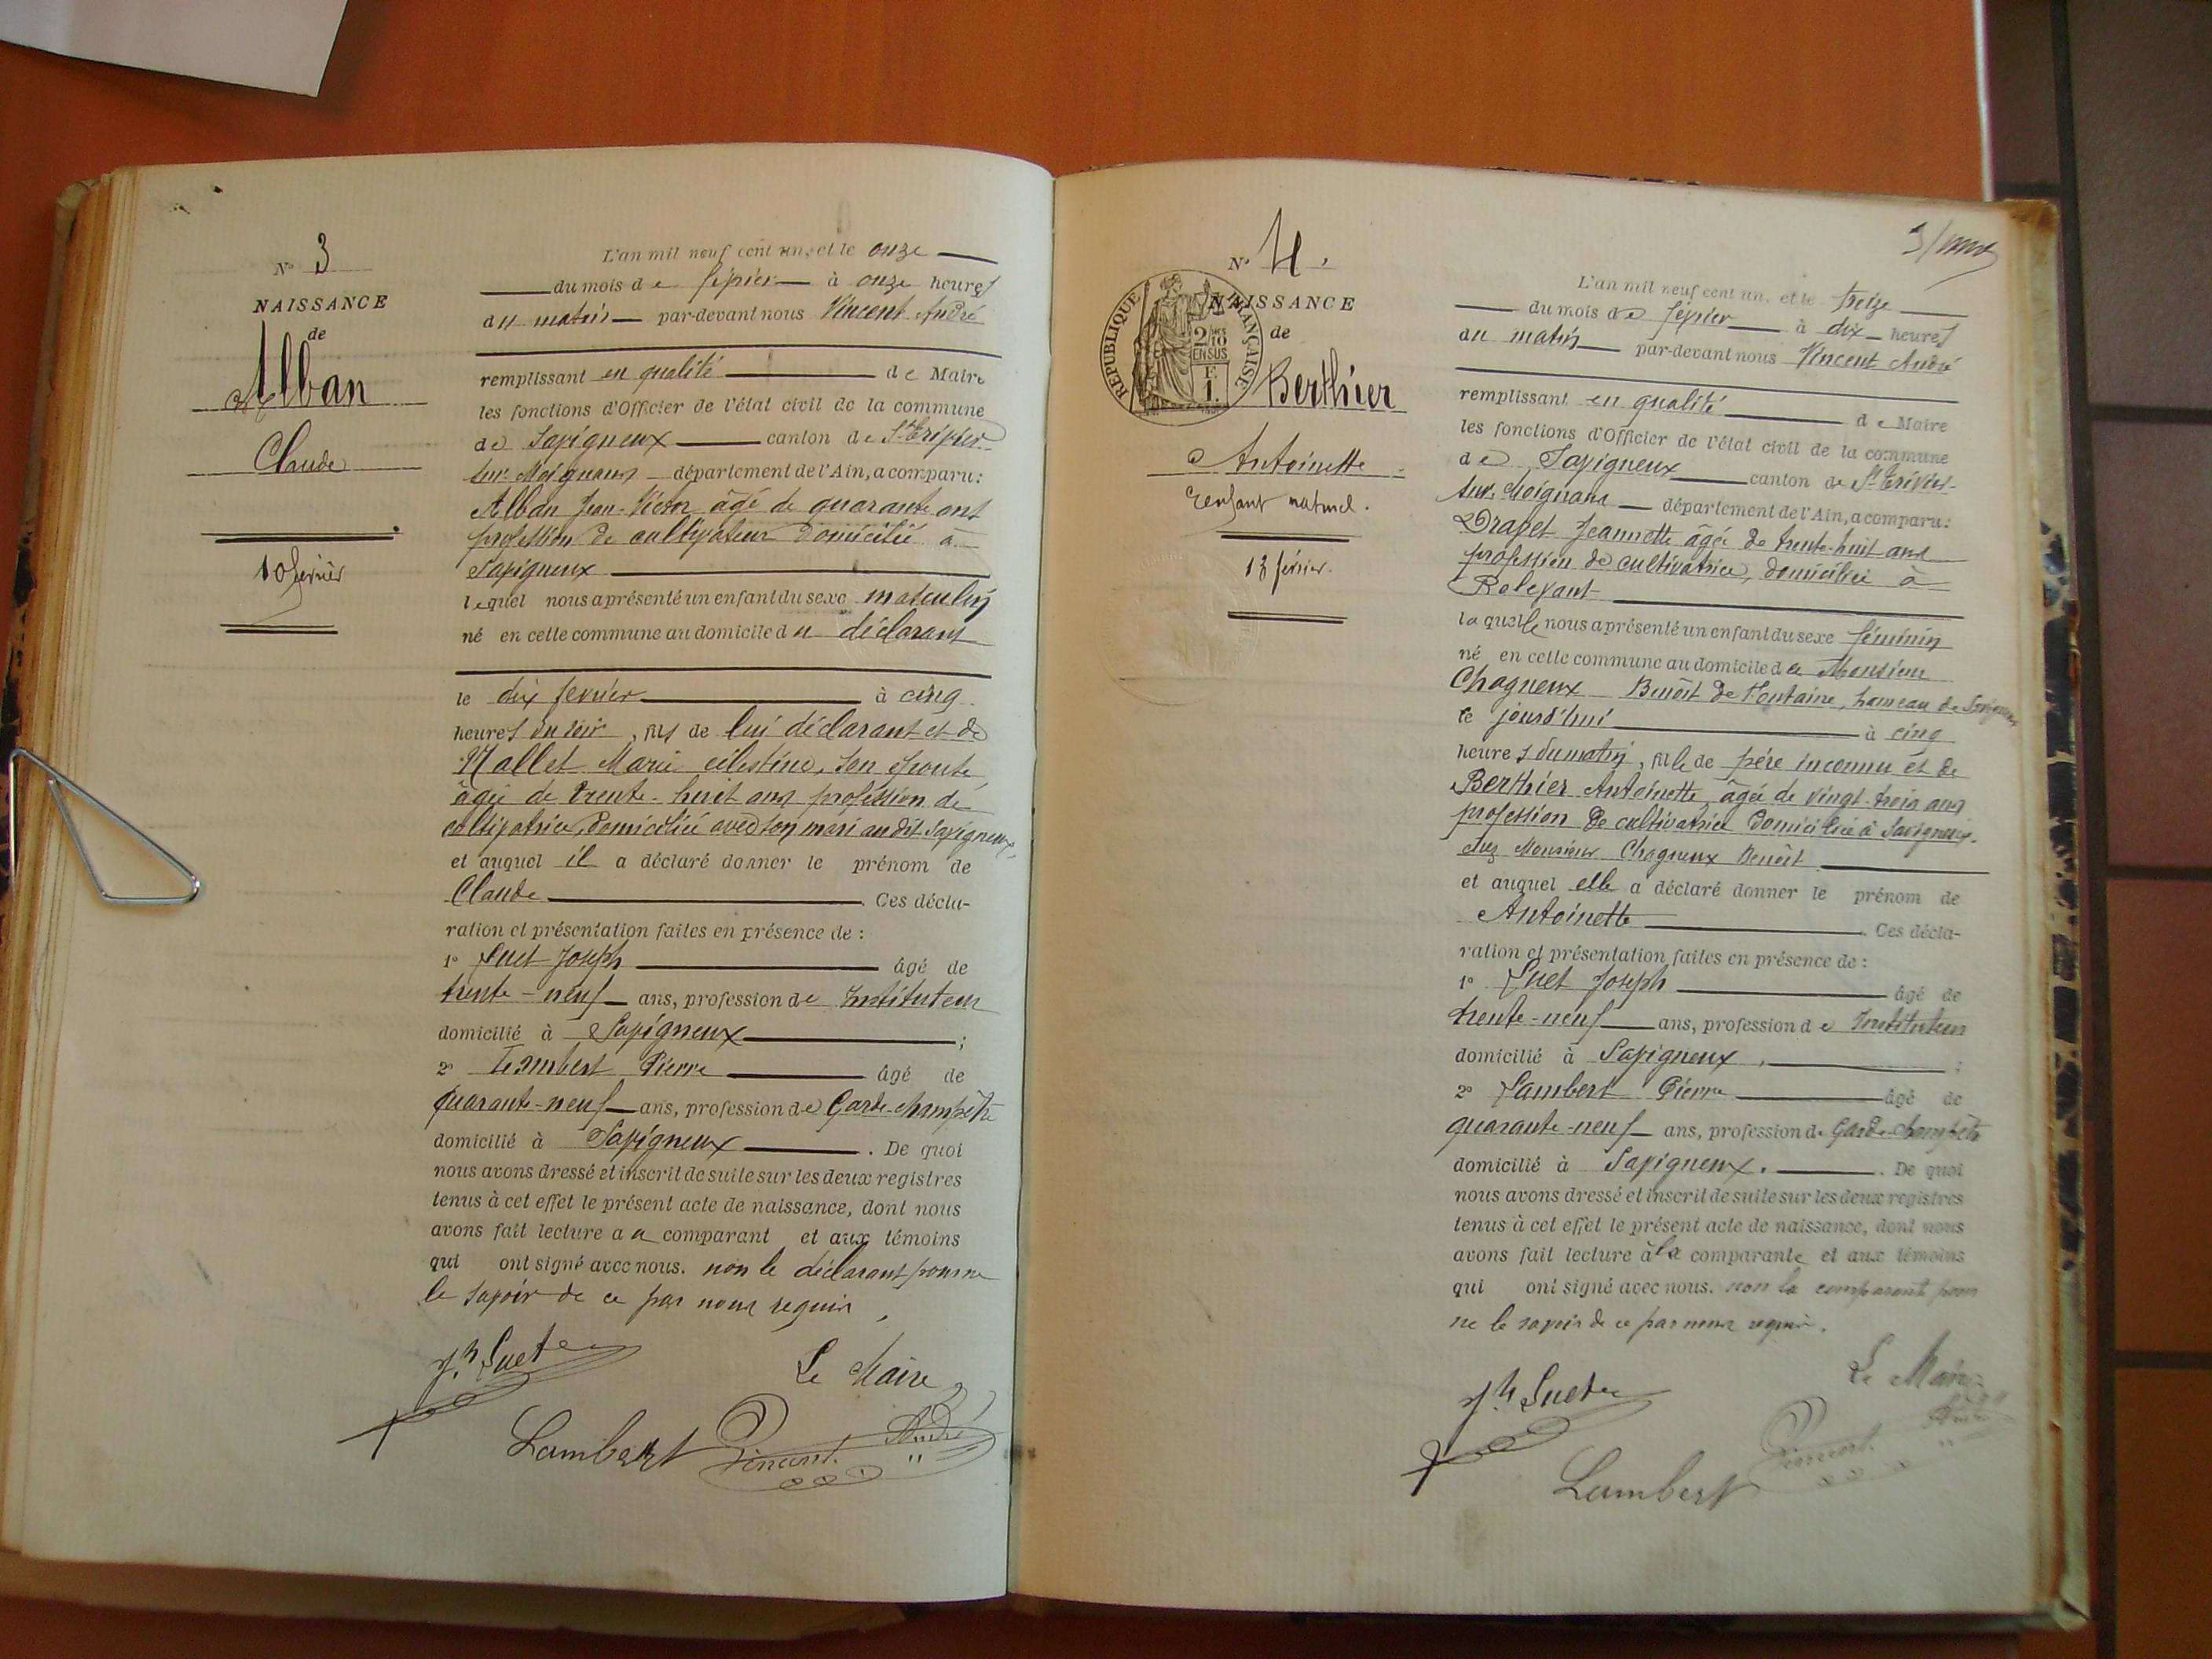 N° 3
NAISSANCE
de
Alban
Claude
10 février
L'an mil neuf cent un, et le onze
du mois de février à onze heures
du matin par-devant nous Vincent André
remplissant en qualité de Maire
les fonctions d'Officier de l'état civil de la commune
de Savigneux canton de St Trivier-
sur-Moignans département de l'Ain, a comparu:
Alban Jean-Victor âgé de quarante ans
profession de cultivateur domicilié à
Savigneux
lequel nous a présenté un enfant du sexe masculin
né en cette commune au domicile du déclarant
le dix fevrier à cinq
heures du soir, fils de lui déclarant et de
Mallet Marie célestine, son épouse
âgée de trente-huit ans profession de
cultivatrice, domiciliée avec son mari au dit Savigneux,
et auquel il a déclaré donner le prénom de
Claude. Ces décla-
ration et présentation faites en présence de :
1° Suet Joseph âgé de
trente-neuf ans, profession de Instituteur
domicilié à Savigneux ;
2° Lambert Pierre âgé de
quarante-neuf ans, profession de Garde-champêtre
domicilié à Savigneux. De quoi
nous avons dressé et inscrit de suite sur les deux registres
tenus à cet effet le présent acte de naissance, dont nous
avons fait lecture au comparant et aux témoins
qui ont signé avec nous. non le déclarant pour ne
le savoir de ce par nous requis,
Jh Suet
Le Maire
Lambert Vincent André
3/
N° 4.
NAISSANCE
RÉPUBLIQUE FRANÇAISE
2/10 EN SUS
F.
1.
de
Berthier
Antoinette
enfant naturel.
13 février.
L'an mil neuf cent un, et le treize
du mois de février à dix heures
du matin par-devant nous Vincent André
remplissant en qualité de Maire
les fonctions d'Officier de l'état civil de la commune
de Savigneux canton de St Trivier-
sur-Moignans département de l'Ain, a comparu:
Drapet Jeannette âgée de trente-huit ans
profession de cultivatrice, domiciliée à
Relevant
laquelle nous a présenté un enfant du sexe féminin
né en cette commune au domicile de Monsieur
Chagneux Benoît de Fontaine, hameau de Savigneux
le jourd'hui à cinq
heures du matin, fille de père inconnu et de
Berthier Antoinette, âgée de vingt-trois ans
profession de cultivatrice domiciliée à Savigneux.
chez Monsieur Chagneux Benoît
et auquel elle a déclaré donner le prénom de
Antoinette. Ces décla-
ration et présentation faites en présence de :
1° Suet Joseph âgé de
trente-neuf ans, profession de Instituteur
domicilié à Savigneux. ;
2° Lambert Pierre âgé de
quarante-neuf ans, profession de Garde-champêtre
domicilié à Savigneux. De quoi
nous avons dressé et inscrit de suite sur les deux registres
tenus à cet effet le présent acte de naissance, dont nous
avons fait lecture à la comparante et aux témoins
qui ont signé avec nous. non la comparant pour
ne le savoir de ce par nous requis.
Jh Suet
Le Maire
Lambert Vincent André